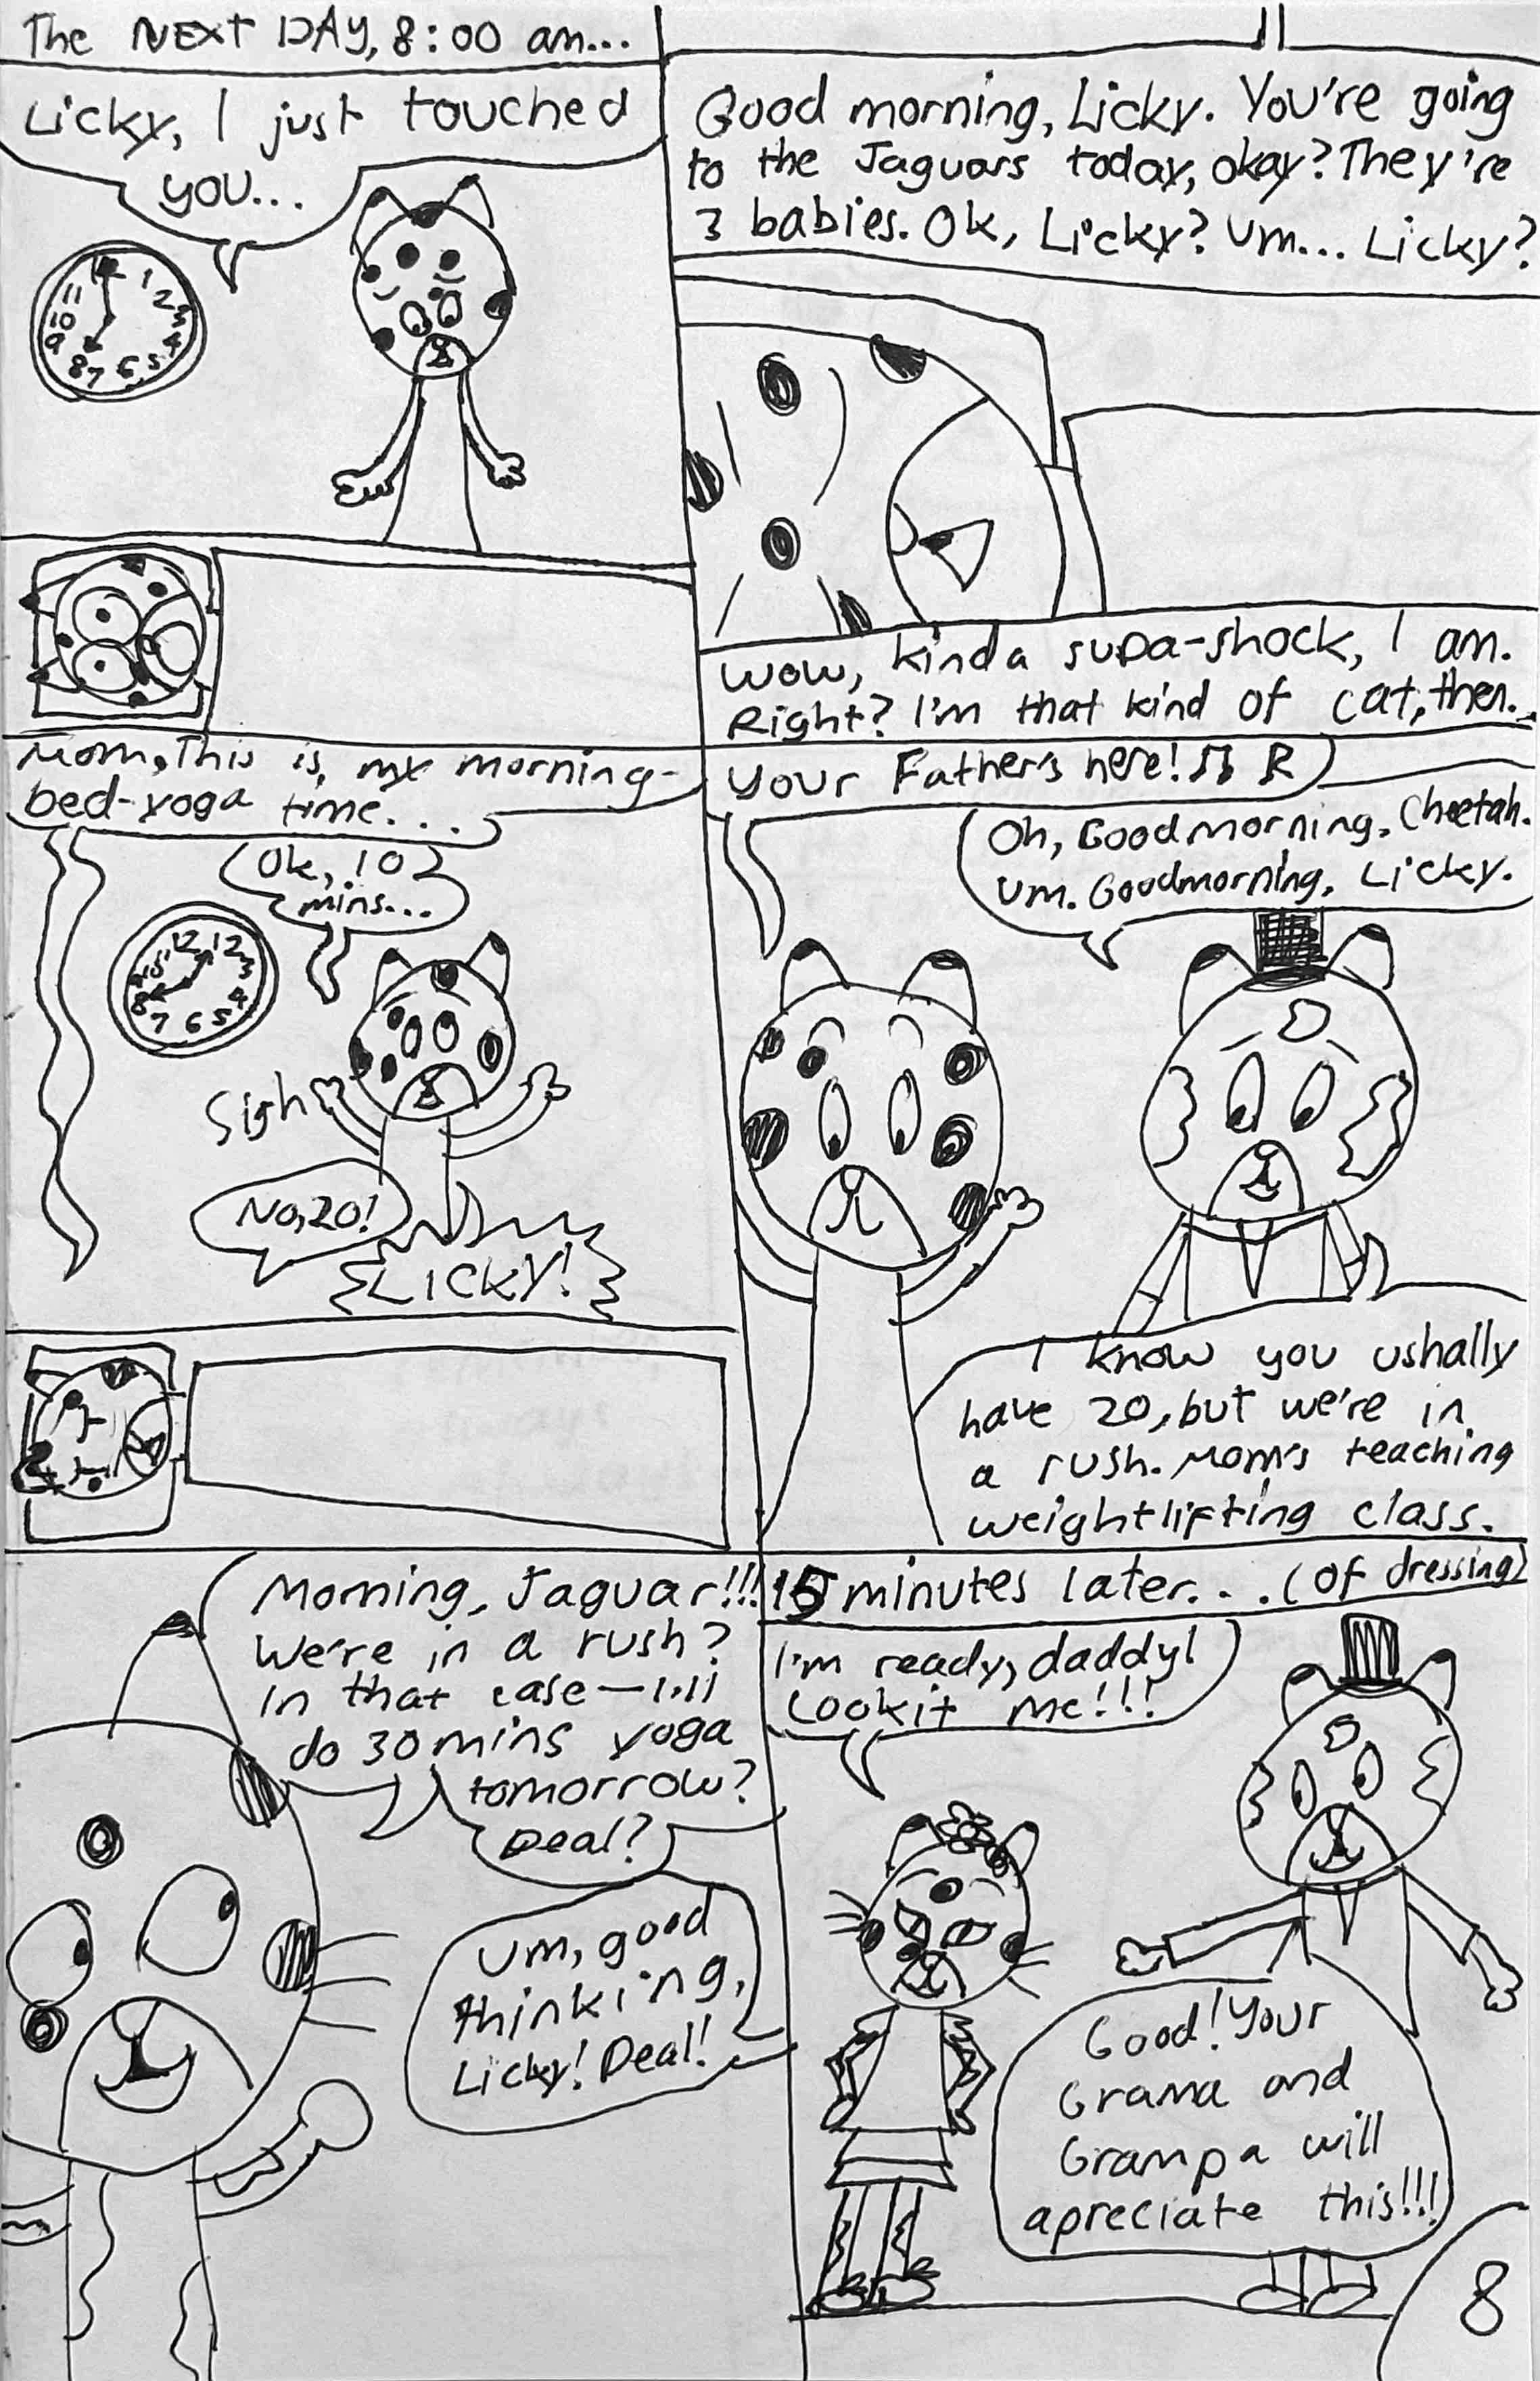 The NEXT DAY, 8:00 am...
Licky, I just touched
you...
11
Good morning, Licky. You're going
to the Jaguars today, okay? They're
3 babies. Ok, Licky? Um... Licky?
Wow, kinda supa-shock, I am.
Right? I'm that kind of cat, then..
Mom, This is, my morning-
bed-yoga time....
Ok, 10
mins...
Sigh
No, 20!
LICKY!
Your Father's here!
Oh, Goodmorning, Cheetah.
Um. Goodmorning, Licky.
I know you ushally
have 20, but we're in
a rush. Mom's teaching
weightlifting class.
Morning, Jaguar!!!
We're in a rush?
In that case—I'll
do 30 mins yoga
tomorrow?
Deal?
Um, good
thinking,
Licky! Deal!
15 minutes later... (of dressing)
I'm ready, daddy!
Lookit me!!!
Good! Your
Grama and
Grampa will
apreciate this!!!
8